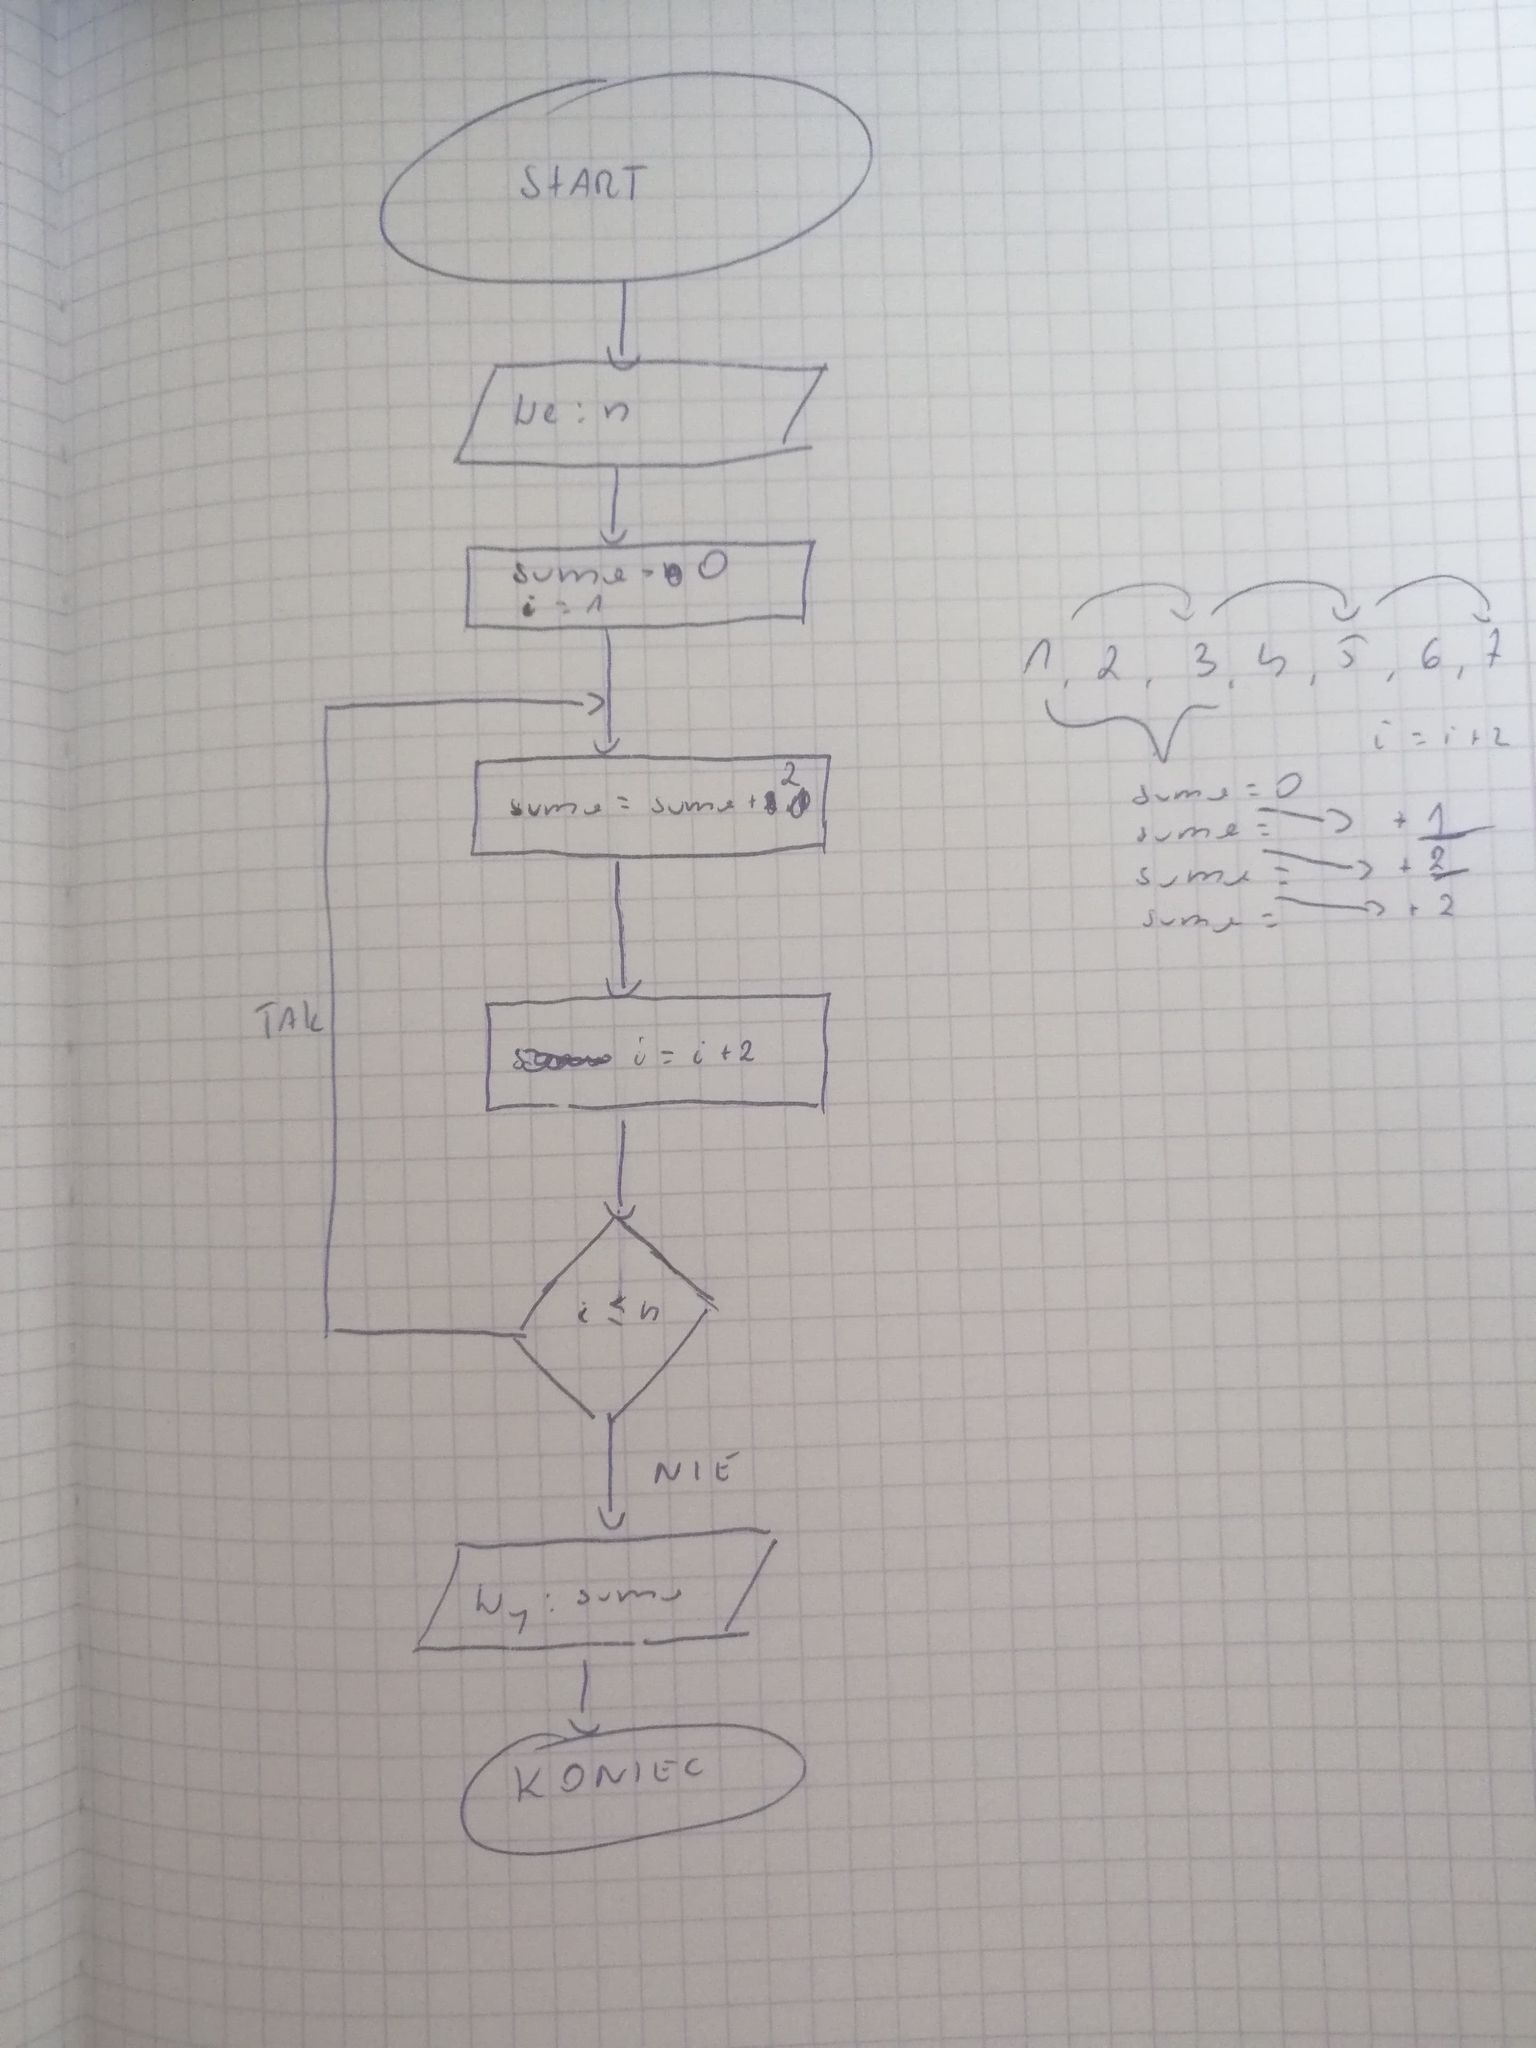 START
We : n
suma = 0
i = 1
suma = suma + 2
i = i + 2
TAK
i ≤ n
NIE
Wy : suma
KONIEC
1, 2, 3, 4, 5, 6, 7
i = i + 2
suma = 0
suma = + 1
suma = + 2
suma = + 2